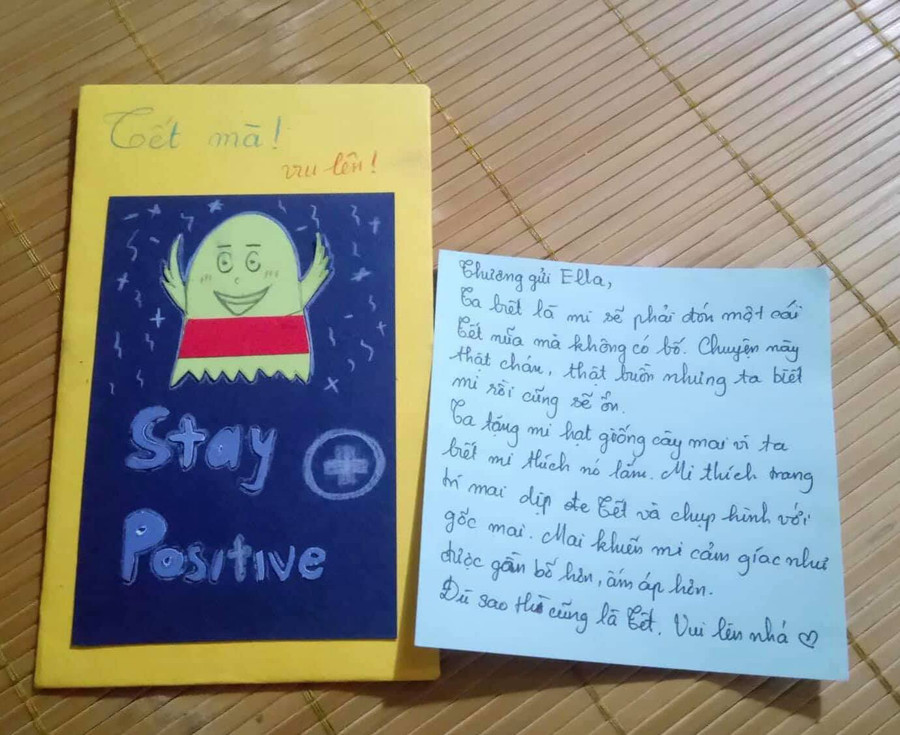 Tết mà!
vui lên!
Stay
Positive
Thương gửi Ella,
Ta biết là mi sẽ phải đón một cái
Tết nữa mà không có bố. Chuyện này
thật chán, thật buồn nhưng ta biết
mi rồi cũng sẽ ổn.
Ta tặng mi hạt giống cây mai vì ta
biết mi thích nó lắm. Mi thích trang
trí mai dịp Tết và chụp hình với
gốc mai. Mai khiến mi cảm giác như
được gần bố hơn, ấm áp hơn.
Dù sao thì cũng là Tết. Vui lên nhá ♡